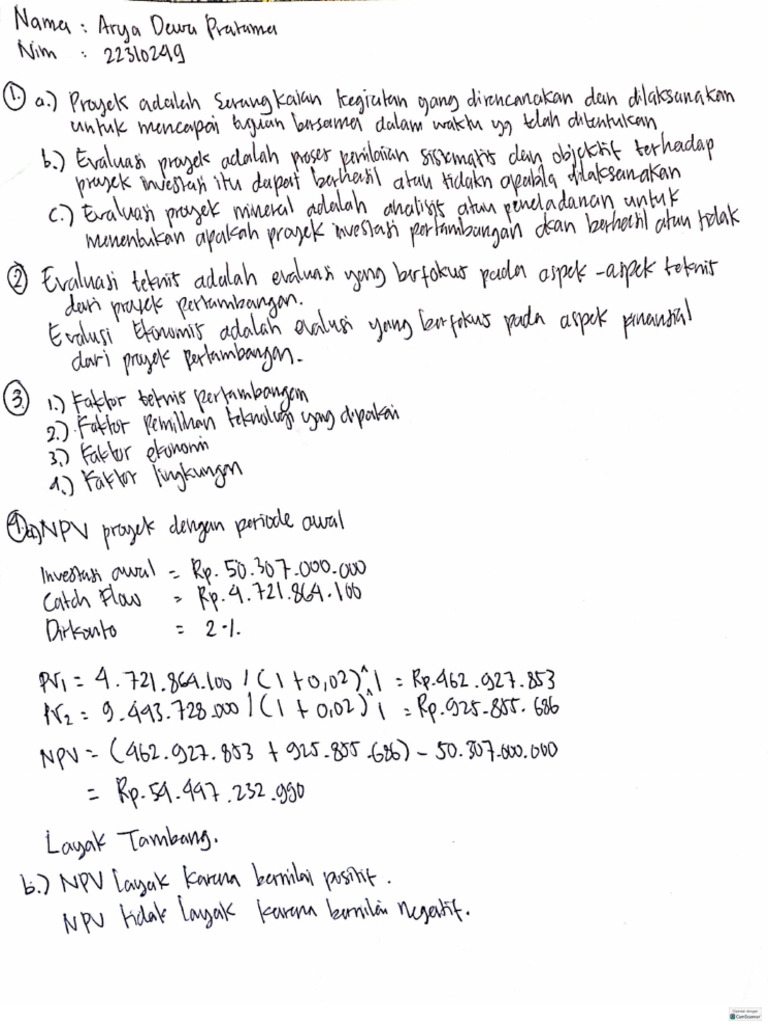 Nama : Arya Dewa Pratama
Nim : 22310249
1. a.) Proyek adalah serangkaian kegiatan yang direncanakan dan dilaksanakan
untuk mencapai tujuan bersama dalam waktu yg telah ditentukan
b.) Evaluasi proyek adalah proses penilaian sistematis dan objektif terhadap
proyek investasi itu dapat berhasil atau tidakn apabila dilaksanakan
c.) Evaluasi proyek mineral adalah analisis atau peneladanan untuk
menentukan apakah proyek investasi pertambangan akan berhasil atau tidak
2 Evaluasi teknis adalah evaluasi yang berfokus pada aspek-aspek teknis
dari proyek pertambangan.
Evalusi Ekonomis adalah evalusi yang berfokus pada aspek finansial
dari proyek pertambangan.
3. 1.) Faktor teknis pertambangan
2.) Faktor Pemilihan teknologi yang dipakai
3.) Faktor ekonomi
4.) Faktor lingkungan
4. a) NPV proyek dengan periode awal
Investasi awal = Rp. 50.307.000.000
Catch Flow = Rp. 4.721.864.100
Diskonto = 2%
PV1 = 4.721.864.100 / (1 + 0,02)^1 = Rp.462.927.853
PV2 = 9.443.728.000 / (1 + 0,02)^1 = Rp.925.855.686
NPV = (462.927.853 + 925.855.686) - 50.307.000.000
= Rp.54.447.232.990
Layak Tambang.
b.) NPV layak karena bernilai positif.
NPV tidak layak karena bernilai negatif.
CamScanner